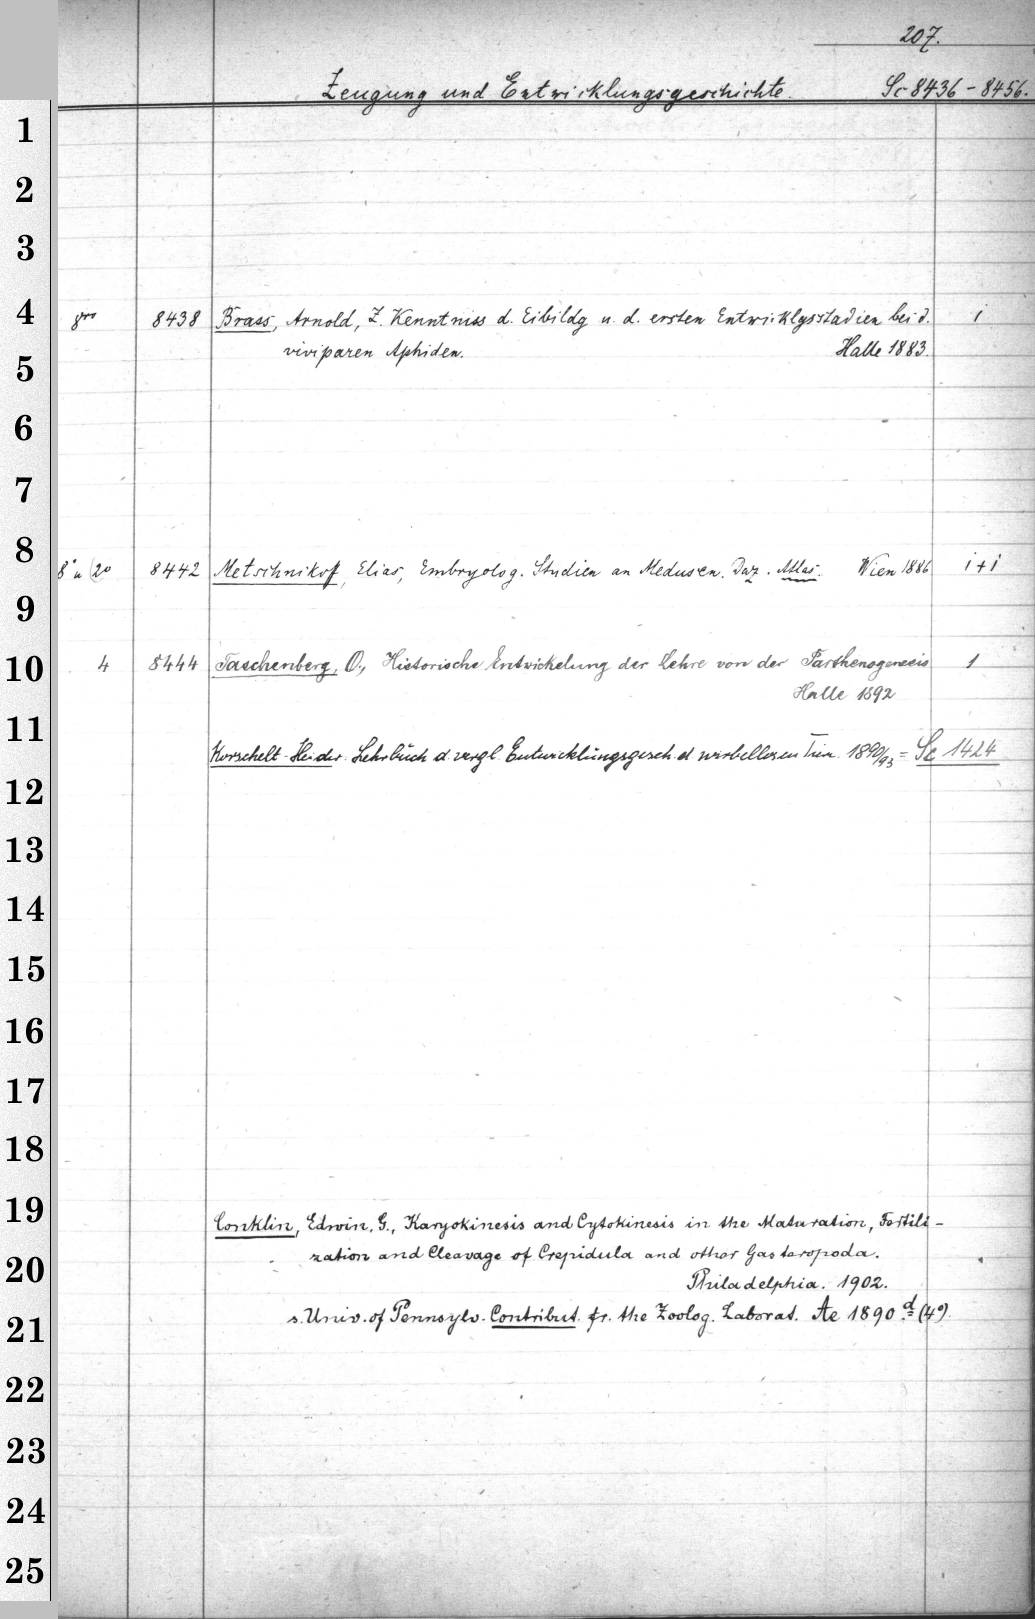 207.
Zeugung und Entwicklungsgeschichte. Sc 8436 - 8456.
1
2
3
4 8vo 8438 Brass, Arnold, Z. Kenntniss d. Eibildg u. d. ersten Entwicklgsstadien bei d. 1
viviparen Aphiden. Halle 1883.
5
6
7
8 8° u 2° 8442 Metschnikoff, Elias, Embryolog. Studien an Medusen. Daz. Atlas. Wien 1886 1+1
9
10 4 8444 Taschenberg, O., Historische Entwickelung der Lehre von der Parthenogenesis 1
Halle 1892
11 Korschelt-Heider. Lehrbuch d. vergl. Entwicklungsgesch. d. wirbellosen Tiere. 1890/93 = Sc 1424
12
13
14
15
16
17
18
19 Conklin, Edwin, G., Karyokinesis and Cytokinesis in the Maturation, Fertili-
zation and Cleavage of Crepidula and other Gasteropoda.
20 Philadelphia. 1902.
21 s. Univ. of Pennsylv. Contribut. fr. the Zoolog. Laborat. Ae 1890 d (4°).
22
23
24
25